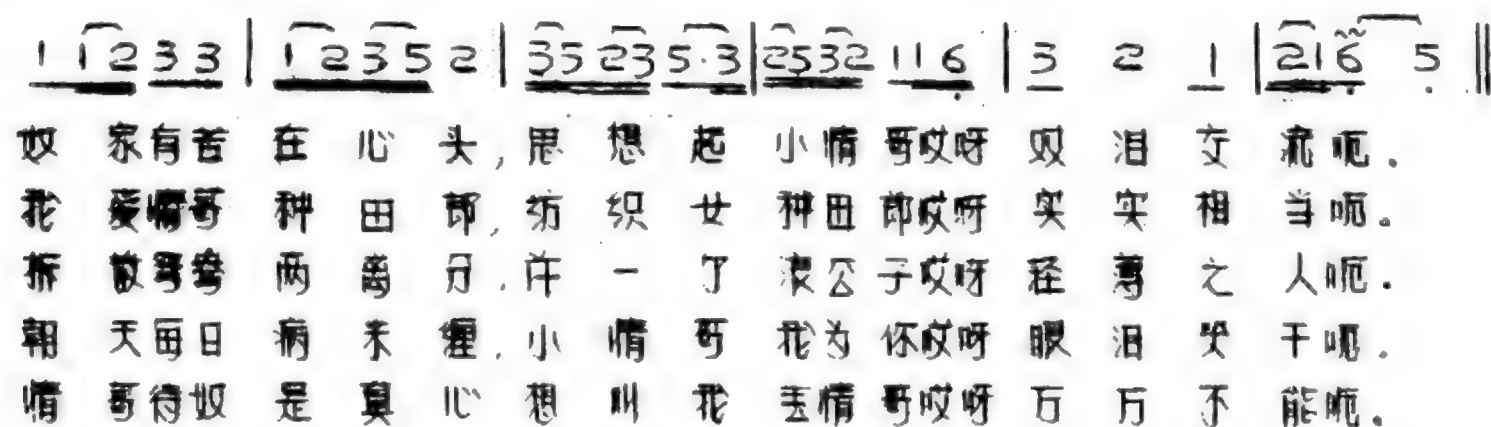 1 1 2 3 3 | 1 2 3 5 2 | 3 5 2 3 5 · 3 | 2 5 3 2 1 1 6 | 3 2 1 | 2 1 6 5 ‖
奴家有苦在心头,思想起小情哥哎呀双泪交流呃。
我爱情哥种田郎,纺织女种田郎哎呀实实相当呃。
拆散鸳鸯两离分,许一了浪公子哎呀轻薄之人呃。
朝天每日病来缠,小情哥我为你哎呀眼泪哭干呃。
情哥待奴是真心想叫我丢情哥哎呀万万不能呃。